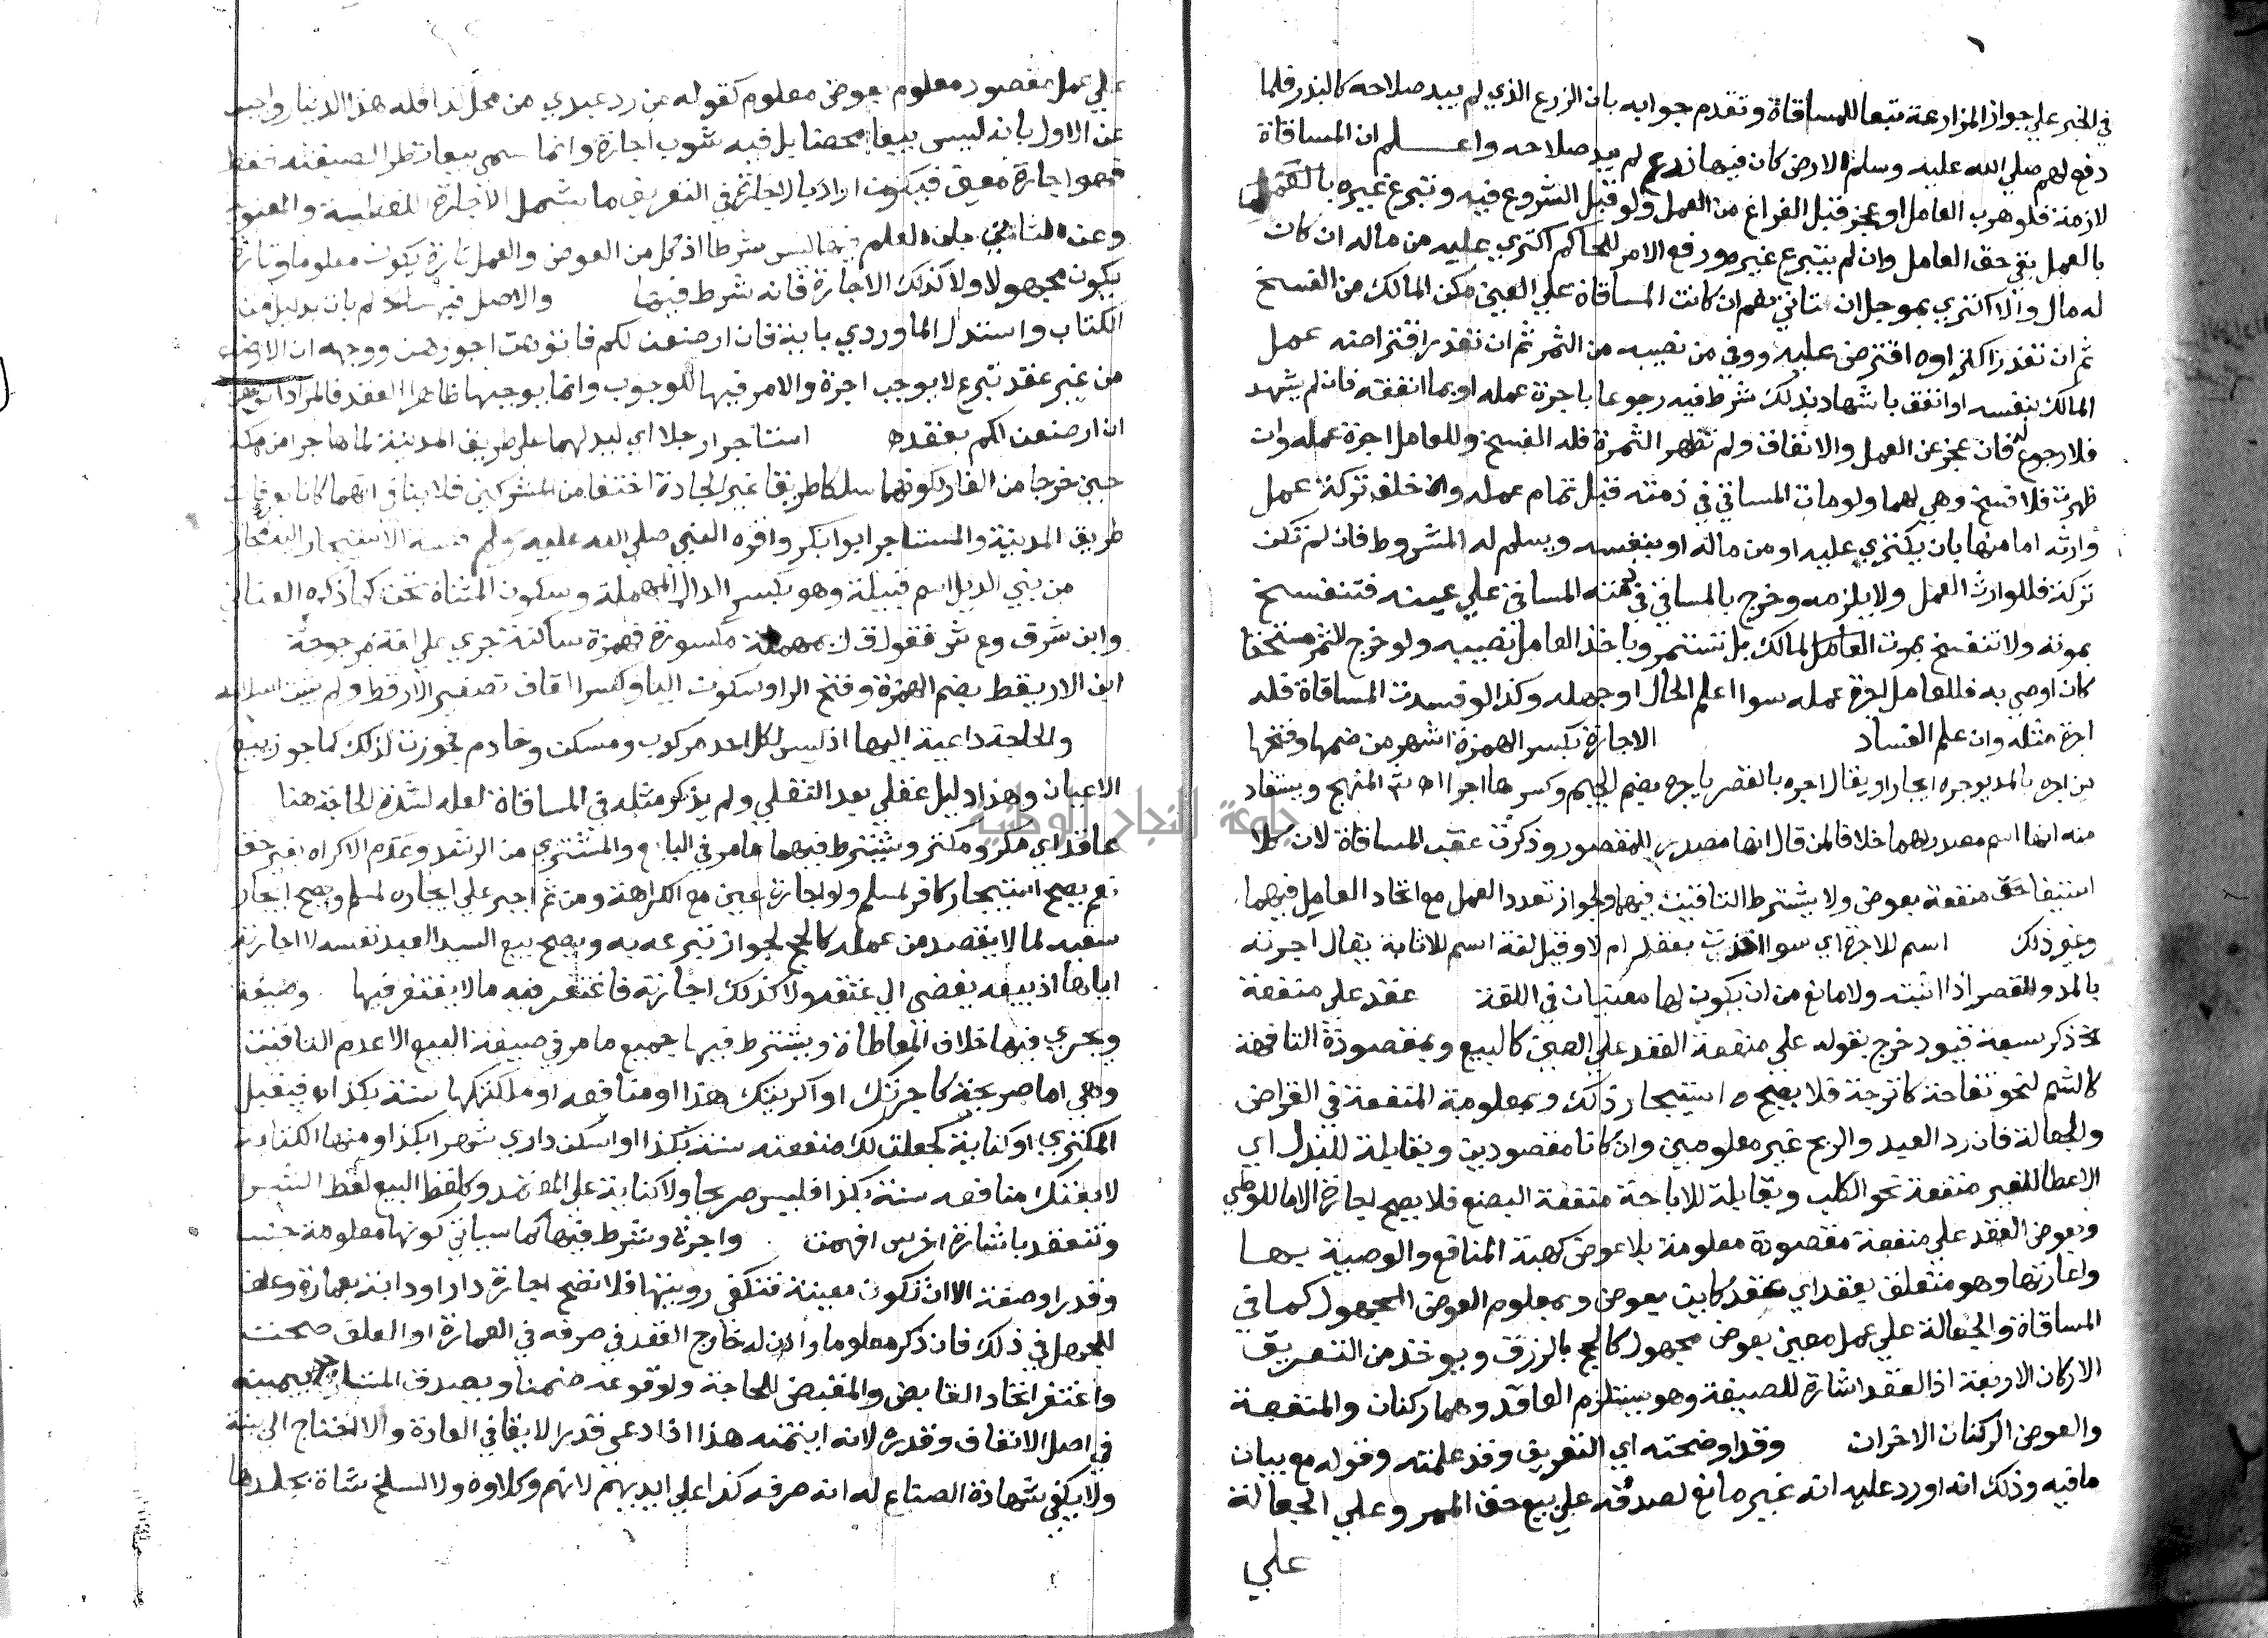 في الخبر علي جواز المزارعة تبعا للمساقاة وتقدم جوابه بان الزرع الذي لم يبد صلاحه كالبذر فلما
دفع لهم صلي الله عليه وسلم الارض كان فيها زرع لم يبد صلاحه واعلم ان المساقاة
لازمة فلو هرب العامل او عجز قبل الفراغ من العمل ولو قبل الشروع فيه وتبرع غيره بالعمل
بالعمل بقي حق العامل وان لم يتبرع غيره ورفع الامر للحاكم اكتري عليه من ماله ان كان
له مال والا اكتري بموجل ان تاتي نعم ان كانت المساقاة علي العين مكن المالك من الفسخ
ثم ان تعذر اكتراوه اقترض عليه ووفي من نصيبه من الثمر ثم ان تعذر اقتراضه عمل
المالك بنفسه او انفق باشهاد بذلك شرط فيه رجوعا باجرة عمله او بما انفقه فان لم يشهد
فلا رجوع له فان عجز عن العمل والانفاق ولم تظهر الثمرة فله الفسخ وللعامل اجرة عمله وان
ظهرت فلا فسخ وهي لهما ولو مات المساقي في ذمته قبل تمام عمله وان خلف تركة عمل
وارثه اما منها بان يكتري عليه او من ماله او بنفسه ويسلم له المشروط فان لم تكن
تركة فللوارث العمل ولا يلزمه وخرج بالمساقي في ذمته المساقي علي عينه فتنفسخ
بموته ولا تنفسخ بموت المالك بل تستمر وياخذ العامل نصيبه ولو خرج الثمر مستحقا
كان اوصي به فللعامل اجرة عمله سوا اعلم الحال او جهله وكذا لو فسدت المساقاة فله
اجرة مثله وان علم الفساد الاجارة بكسر الهمزة اشهر من ضمها وفتحها
من اجره بالمد يوجره ايجارا ويقال اجره بالقصر ياجره بضم الجيم وكسرها اجرا اه المنهج ويستفاد
منه انها اسم مصدر لهما خلافا لمن قال انها مصدر المقصور وذكرت عقب المساقاة لان كلا
استيفا منفعة بعوض ولا يشترط التاقيت فيهما ولجواز تعدد العمل مع اتحاد العامل فيهما
وغير ذلك اسم للاجرة اي سوا اخذت بعقد ام لا وقيل لغة اسم للاثابة يقال اجرته
بالمد والقصر اذا اثبته ولا مانع من ان يكون لها معنيان في اللغة عقد علي منفعة
ذكر سبعة قيود خرج بقوله علي منفعة العقد علي العين كالبيع وبمقصودة التافهة
كالشم لنحو تفاحة كاترجة فلا يصح استيجار ذلك وبمعلومة المنفعة في القراض
والجعالة فان رد العبد والربح غير معلومين وان كانا مقصودين وبقابلة للبذل اي
الاعطا للغير منفعة نحو الكلب وبقابلة للاباحة منفعة البضع فلا يصح اجارة الاما للوطي
وبعوض العقد علي منفعة مقصودة معلومة بلا عوض كهبة المنافع والوصية بها
واعارتها وهو متعلق بعقد اي عقد كاين بعوض وبمعلوم العوض المجهول كما في
المساقاة والجعالة علي عمل معين بعوض مجهول كالحج بالرزق ويوخذ من التعريف
الاركان الاربعة اذ العقد اشارة للصيغة وهو يستلزم العاقد وهما ركنان والمنفعة
والعوض الركنان الاخران وقد اوضحته اي التعريف وقد علمته وقوله مع بيان
ما فيه وذلك انه اورد عليه انه غير مانع لصدقه علي بيع حق الممر وعلي الجعالة
علي
علي عمل مقصود معلوم بعوض معلوم كقوله من رد عبدي من محل كذا فله هذا الدينار واجيب
عن الاول بانه ليس بيعا محضا بل فيه شوب اجارة وانما سمي بيعا نظرا لصيغته فقط
فهو اجارة معني فيكون اراد بالاجارة في التعريف ما يشمل الاجارة اللفظية والمعنوية
وعن الثاني بان العلم فيها ليس شرطا اذ كل من العوض والعمل تارة يكون معلوما وتارة
يكون مجهولا ولا كذلك الاجارة فانه شرط فيها والاصل فيها
الكتاب واستدل الماوردي باية فان ارضعن لكم فاتوهن اجورهن ووجهه ان الارضاع
من غير عقد تبرع لا يوجب اجرة والامر فيها للوجوب وانما يوجبها ظاهرا العقد فالمراد
ان ارضعن لكم بعقد استاجر رجلا اي ليدلهما علي طريق المدينة لما هاجر من مكة
حين خرجا من الغار لكونهما سلكا طريقا غير الجادة اختفا من المشركين فلا ينافي انهما كانا يعرفان
طريق المدينة والمستاجر ابو بكر واقره النبي صلي الله عليه وسلم
من بني الديل اسم قبيلة وهو بكسر الدال المهملة وسكون المثناة تحت كما ذكره
وابن شرف وع ش فقول ق ل بمهملة مكسورة فهمزة ساكنة جري علي لغة مرجوحة
ابن الاريقط بضم الهمزة وفتح الرا وسكون اليا وكسر القاف تصغير الارقط ولم
والحاجة داعية اليها اذ ليس لكل احد مركوب ومسكن وخادم فجوزت لذلك كما جوز بيع
الاعيان وهذا دليل عقلي بعد النقلي ولم يذكر مثله في المساقاة لعله لشدة الحاجة هنا
عاقد اي مكر ومكتر ويشترط فيهما ما مر في البايع والمشتري من الرشد وعدم الاكراه بغير حق
نعم يصح استيجار كافر لمسلم ولو اجارة عين مع الكراهة ومن ثم اجبر علي ايجاره لمسلم ويصح ايجار
سفيه لما لا يقصد من عمله كالحج لجواز تبرعه به ويصح بيع السيد العبد نفسه لا اجارته
اياها اذ بيعه يفضي الي عتقه ولا كذلك اجارته فاغتفر فيه ما لا يغتفر فيها وصيغة
ويجري فيها خلاف المعاطاة ويشترط فيها جميع ما مر في صيغة البيع الا عدم التاقيت
وهي اما صريحة كاجرتك او اكريتك هذا او منافعه او ملكتكها سنة بكذا فيقبل
المكتري او كناية كجعلت لك منفعته سنة بكذا او اسكن داري شهرا بكذا ومنها الكتابة
لا بعتك منافعه سنة بكذا فليس صريحا ولا كناية علي المعتمد وكلفظ البيع لفظ الشرا
وتنعقد باشارة اخرس افهمت واجرة وشرط فيها كما سياتي كونها معلومة جنسا
وقدرا وصفة الا ان تكون معينة فتكفي رويتها فلا تصح اجارة دار او دابة بعمارة وعلف
للجهل في ذلك فان ذكر معلوما واذن له خارج العقد في صرفه في العمارة او العلف صحت
واغتفر اتحاد القابض والمقبض للحاجة ولوقوعه ضمنا ويصدق المستاجر بيمينه
في اصل الانفاق وقدره لانه ايتمنه هذا اذا ادعي قدرا لايقا في العادة والا احتاج الي بينة
ولا يكفي شهادة الصناع له انه صرفه كذا علي ايديهم لانهم وكلاوه ولا لسلخ شاة بجلدها
جامعة النجاح الوطنية